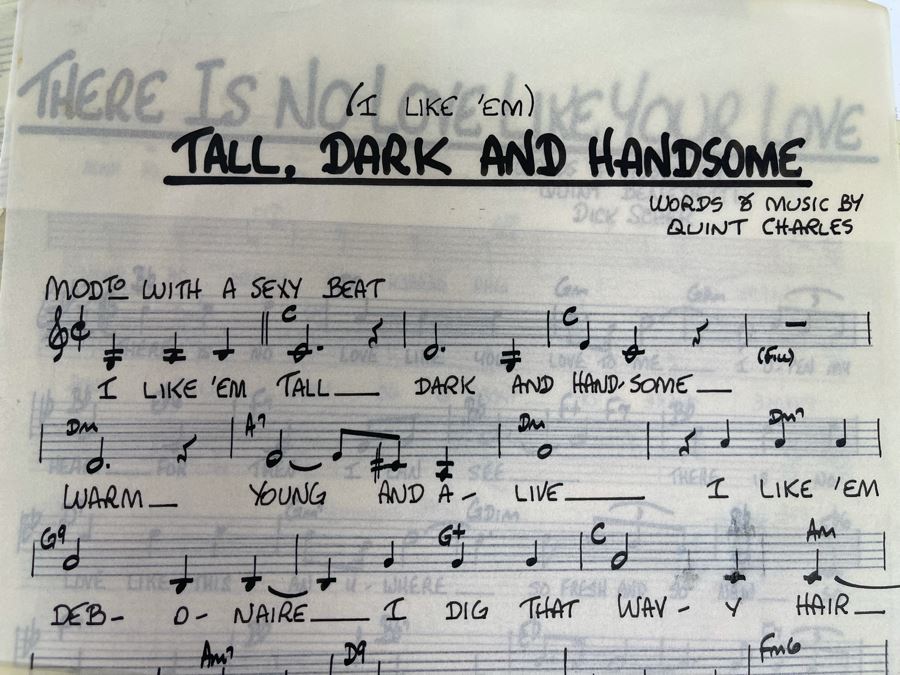 THERE IS NO LOVE LIKE YOUR LOVE
(I LIKE 'EM)
TALL, DARK AND HANDSOME
WORDS & MUSIC BY
QUINT CHARLES
MODTO WITH A SEXY BEAT
C C
(FILL)
I LIKE 'EM TALL___ DARK AND HAND-SOME___
Dm A7 Dm Dm7
WARM__ YOUNG AND A- LIVE______ I LIKE 'EM
G9 G+ C Am
DEB- O- NAIRE____ I DIG THAT WAV- Y HAIR__
Am7 D9 Fm6